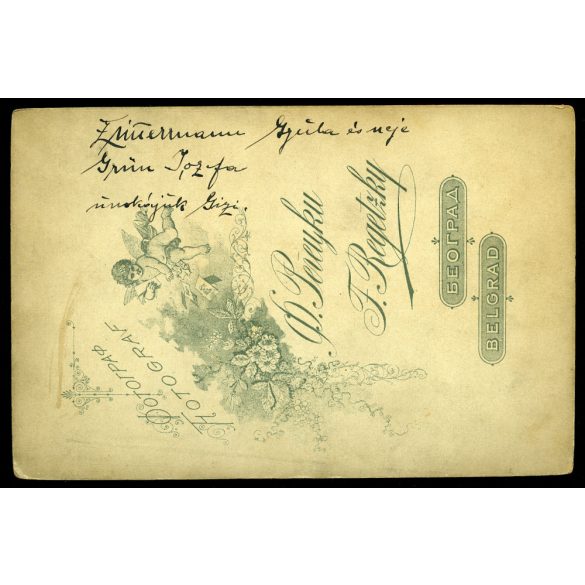 Zimmermann Gyula és neje
Grün Jozefa
unokájuk Gizi.
ФОТОГРАФ
FOTOGRAF
F. Regetzky
БЕОГРАД
BELGRAD